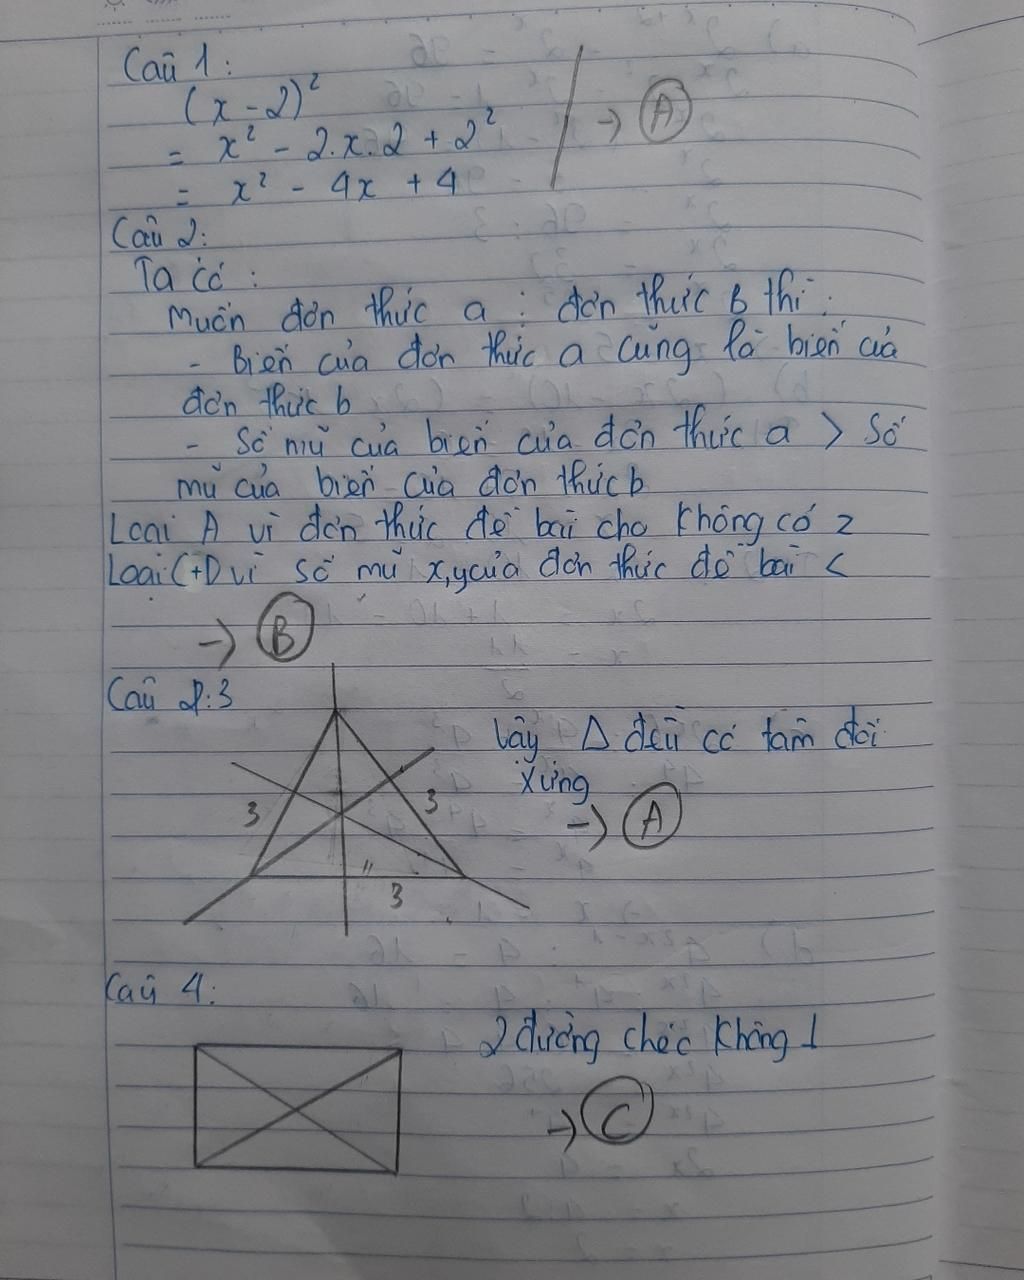 Câu 1:
(x - 2)²
= x² - 2.x.2 + 2²
= x² - 4x + 4
→ A
Câu 2:
Ta có:
Muốn đơn thức a : đơn thức B thì:
- Biến của đơn thức a cũng là biến của
đơn thức b
- Số mũ của biến của đơn thức a > Số
mũ của biến của đơn thức b
Loại A vì đơn thức đề bài cho không có z
Loại C+D vì số mũ x,y của đơn thức đề bài <
→ B
Câu 3
3
3
3
Vậy Δ đều có tâm đối
xứng
→ A
Câu 4:
2 đường chéc không ⊥
→ C